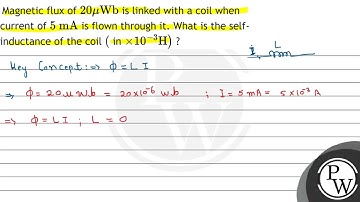 Magnetic flux of 20μWb is linked with a coil when
current of 5 mA is flown through it. What is the self-
inductance of the coil ( in ×10⁻³H) ?
I L
Key Concept:⇒ ϕ = L I
⇒ ϕ = 20 μ wb = 20×10⁻⁶ wb ; I = 5 mA = 5×10⁻³ A
⇒ ϕ = L I ; L = 0
P
W